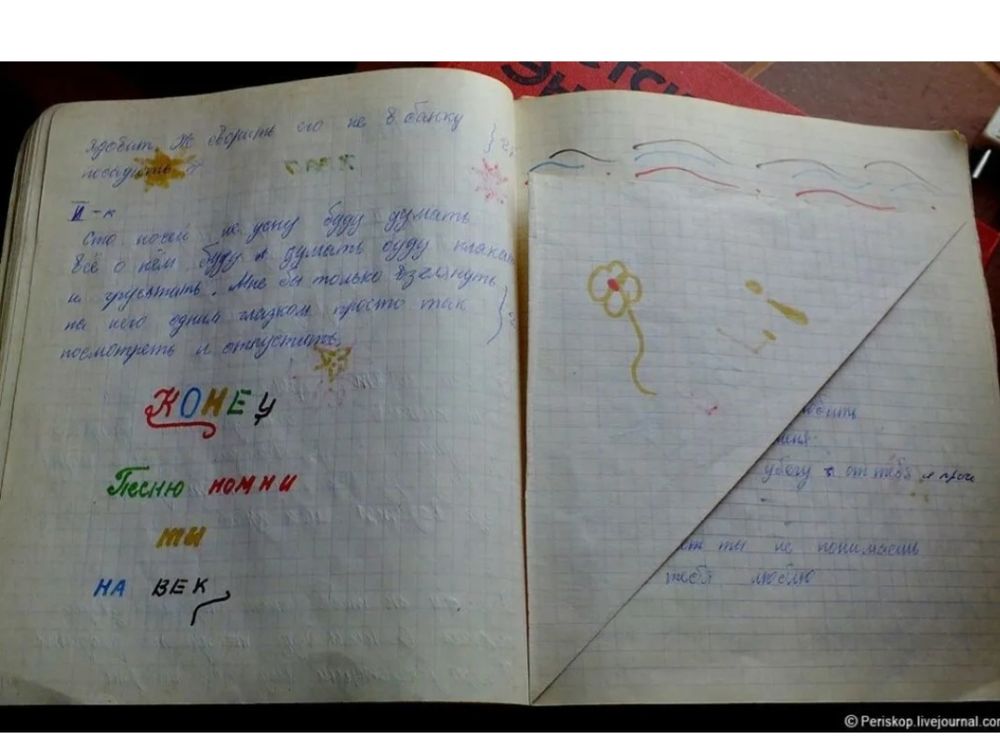 ядовит. Ж сварить его не в банку
посадить
II - к
Сто ночей не усну буду думать
Всё о нём буду я думать буду плакать
и грустить. Мне бы только взглянуть
на него одним глазком просто так
посмотреть и отпустить.
КОНЕЦ
Песню помни
ты
на век
убегу от тебя и
ты не понимаешь
тебя люблю
© Periskop.livejournal.com